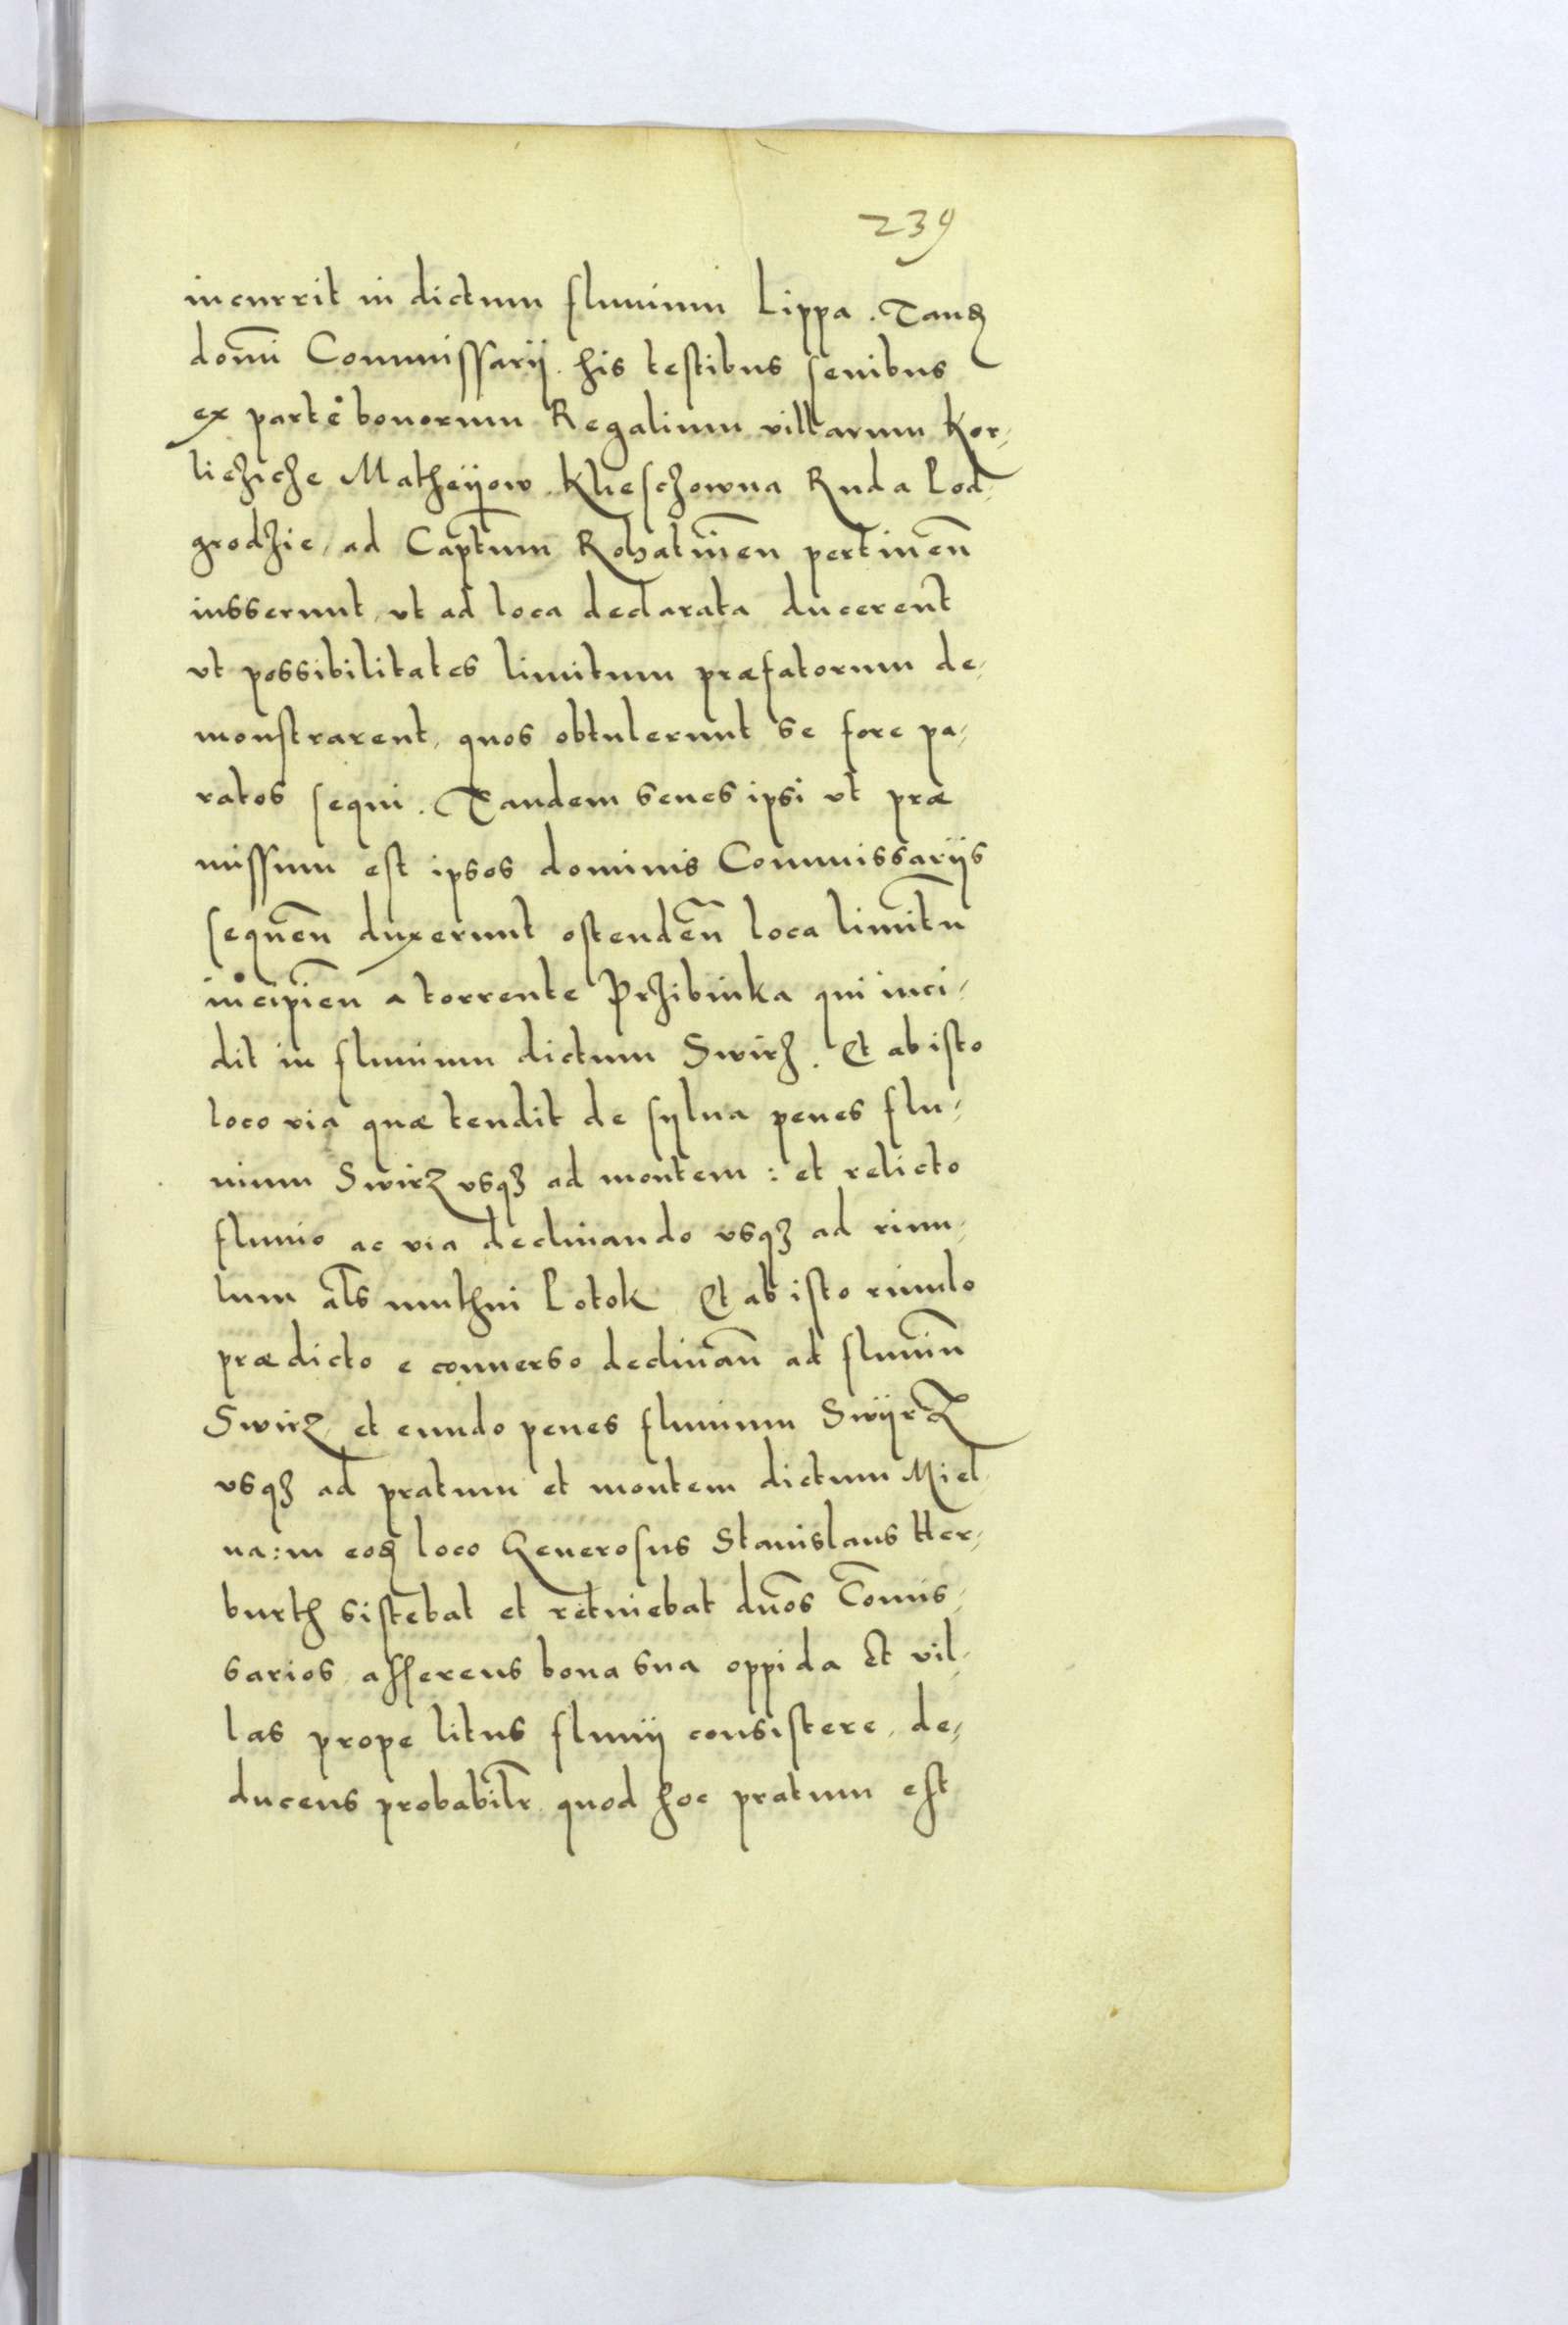 239
incurrit in dictum fluuium Lippa. Tandꝫ
domī Commissarij. his testibus senibus
ex parte bonorum Regalium villarum Kor-
licziche Matheijow. Klieschowna Ruda Pod
grodzie, ad Captūm Rohatinēn pertinēn
iusserunt, vt ad loca declarata ducerent
vt possibilitates limitum præfatorum de-
monstrarent, quos obtulerunt se fore pa-
ratos sequi. Tandem senes ipsi vt præ
missum est ipsos dominis Commissarijs
sequēn duxerunt ostendēn loca limitū
incipiēn a torrente Przibinka qui inci-
dit in fluuium dictum Swirz. Et ab isto
loco via quæ tendit de sylua penes flu-
uium Swirz vsqꝫ ad montem: et relicto
fluuio ac via declinando vsqꝫ ad riuu-
lum al̄s muthni Potok Et ab isto riuulo
prædicto e conuerso declinān ad fluuiū
Swirz, et eundo penes fluuium Swijrz
vsqꝫ ad pratum et montem dictum Miel
na: in eodꝫ loco Generosus Stanislaus Her-
burth sistebat et retiniebat dn̄os Com̄is-
sarios, asserens bona sua oppida et vil-
las prope litus fluuij consistere, de-
ducens probabilr̄ quod hoc pratum est